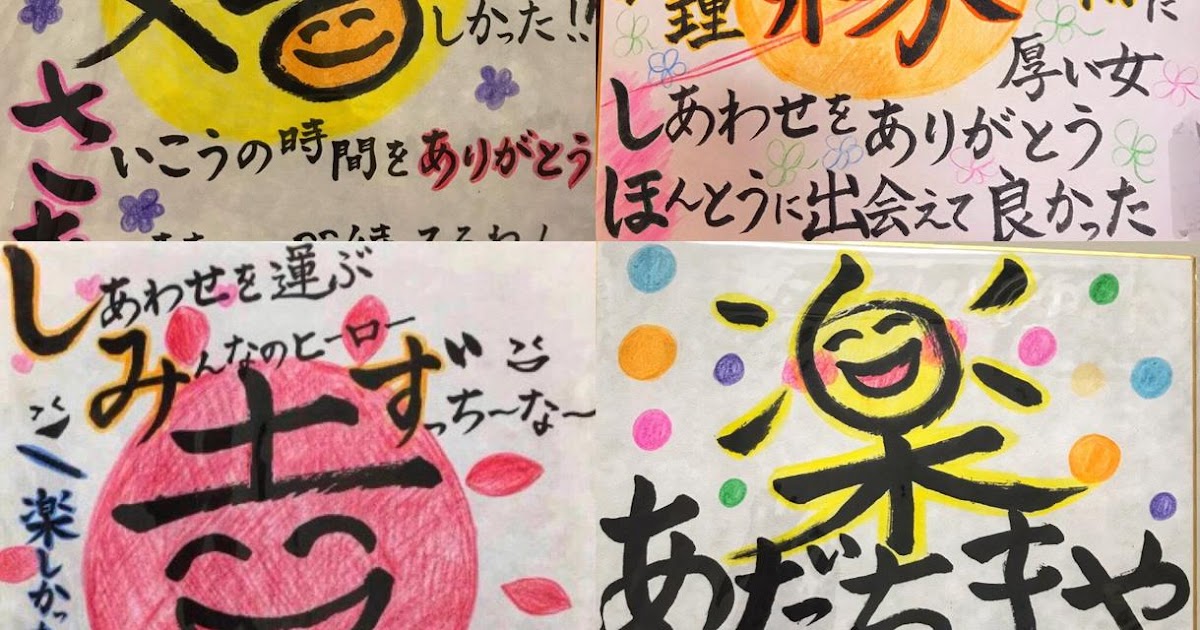 しかった!!
さち
いこうの時間をありがとう
理縁
に
厚い女
しあわせをありがとう
ほんとうに出会えて良かった
しあわせを運ぶ
みんなのヒーロー
ずっち〜な〜
吉
楽しかっ
楽
あだちまや